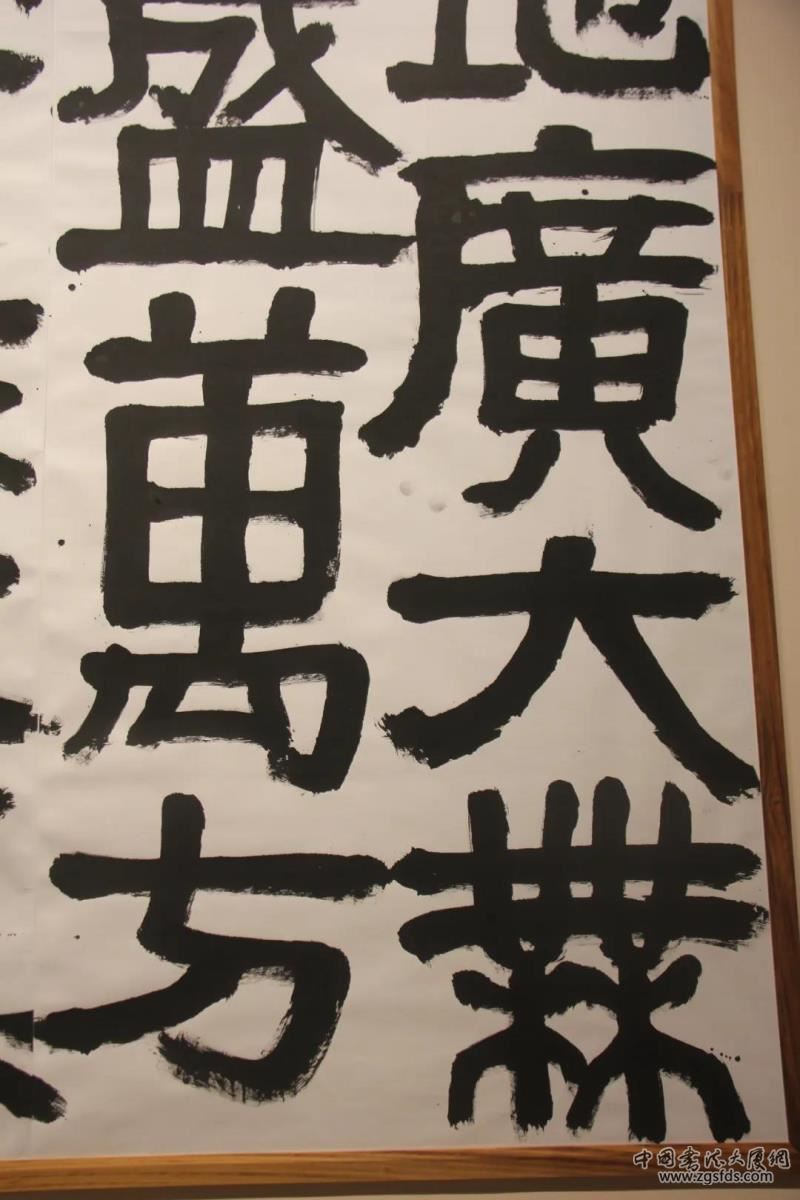 地廣大無
盛萬方
中國書法大廈網
www.zgsfds.com